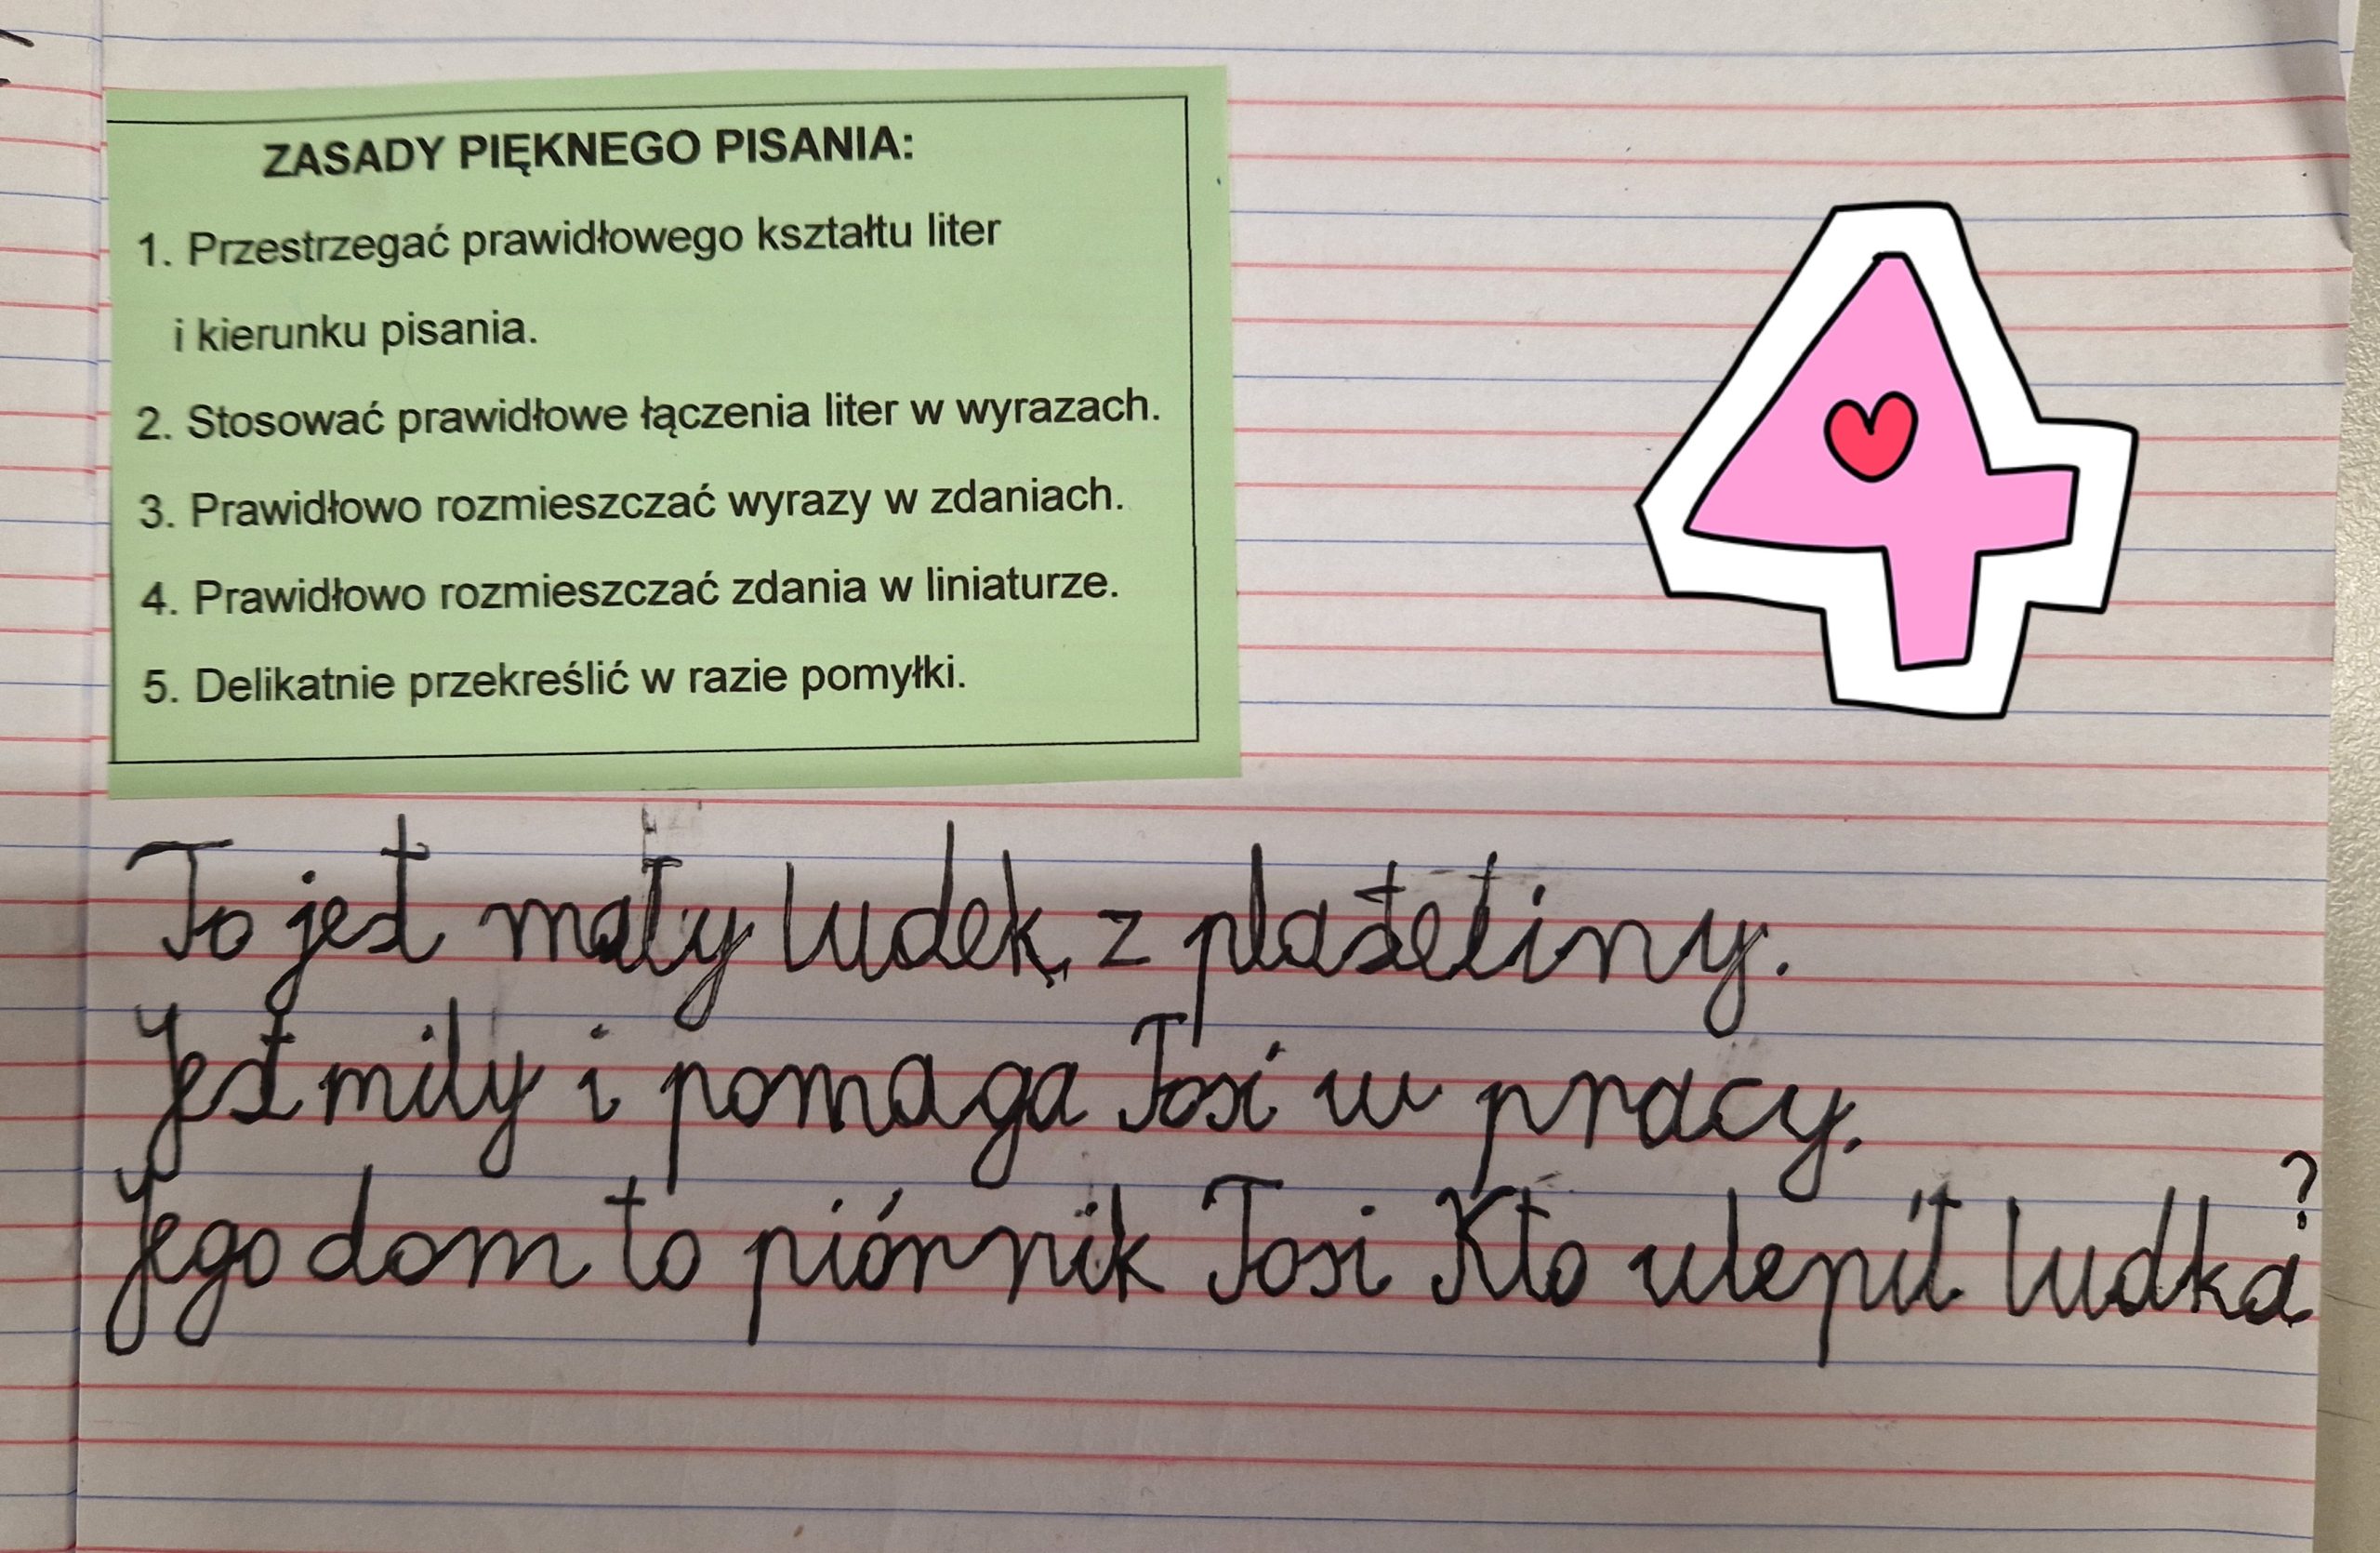 ZASADY PIĘKNEGO PISANIA:
1. Przestrzegać prawidłowego kształtu liter
i kierunku pisania.
2. Stosować prawidłowe łączenia liter w wyrazach.
3. Prawidłowo rozmieszczać wyrazy w zdaniach.
4. Prawidłowo rozmieszczać zdania w liniaturze.
5. Delikatnie przekreślić w razie pomyłki.
4
To jest mały ludek z plasteliny.
Jest miły i pomaga Tosi w pracy.
Jego dom to piórnik Tosi Kto ulepił ludka?